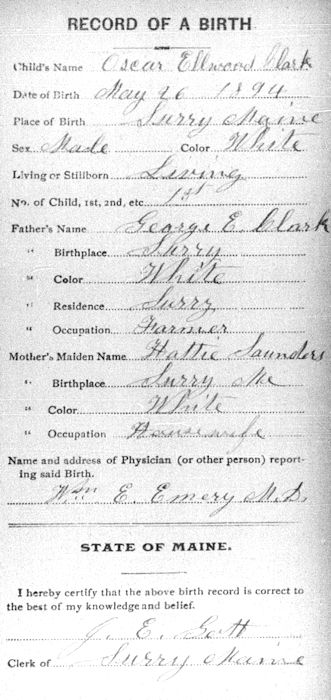 RECORD OF A BIRTH
Child's Name Oscar Ellwood Clark
Date of Birth May 26 1894
Place of Birth Surry Maine
Sex Made Color White
Living or Stillborn Living
No. of Child, 1st, 2nd, etc. 1st
Father's Name George E. Clark
" Birthplace Surry
" Color White
" Residence Surry
" Occupation Farmer
Mother's Maiden Name Hattie Saunders
" Birthplace Surry Me
" Color White
" Occupation Housewife
Name and address of Physician (or other person) report-
ing said Birth.
Wm E. Emery M.D.
STATE OF MAINE.
I hereby certify that the above birth record is correct to
the best of my knowledge and belief.
J. E. Gott
Clerk of Surry Maine